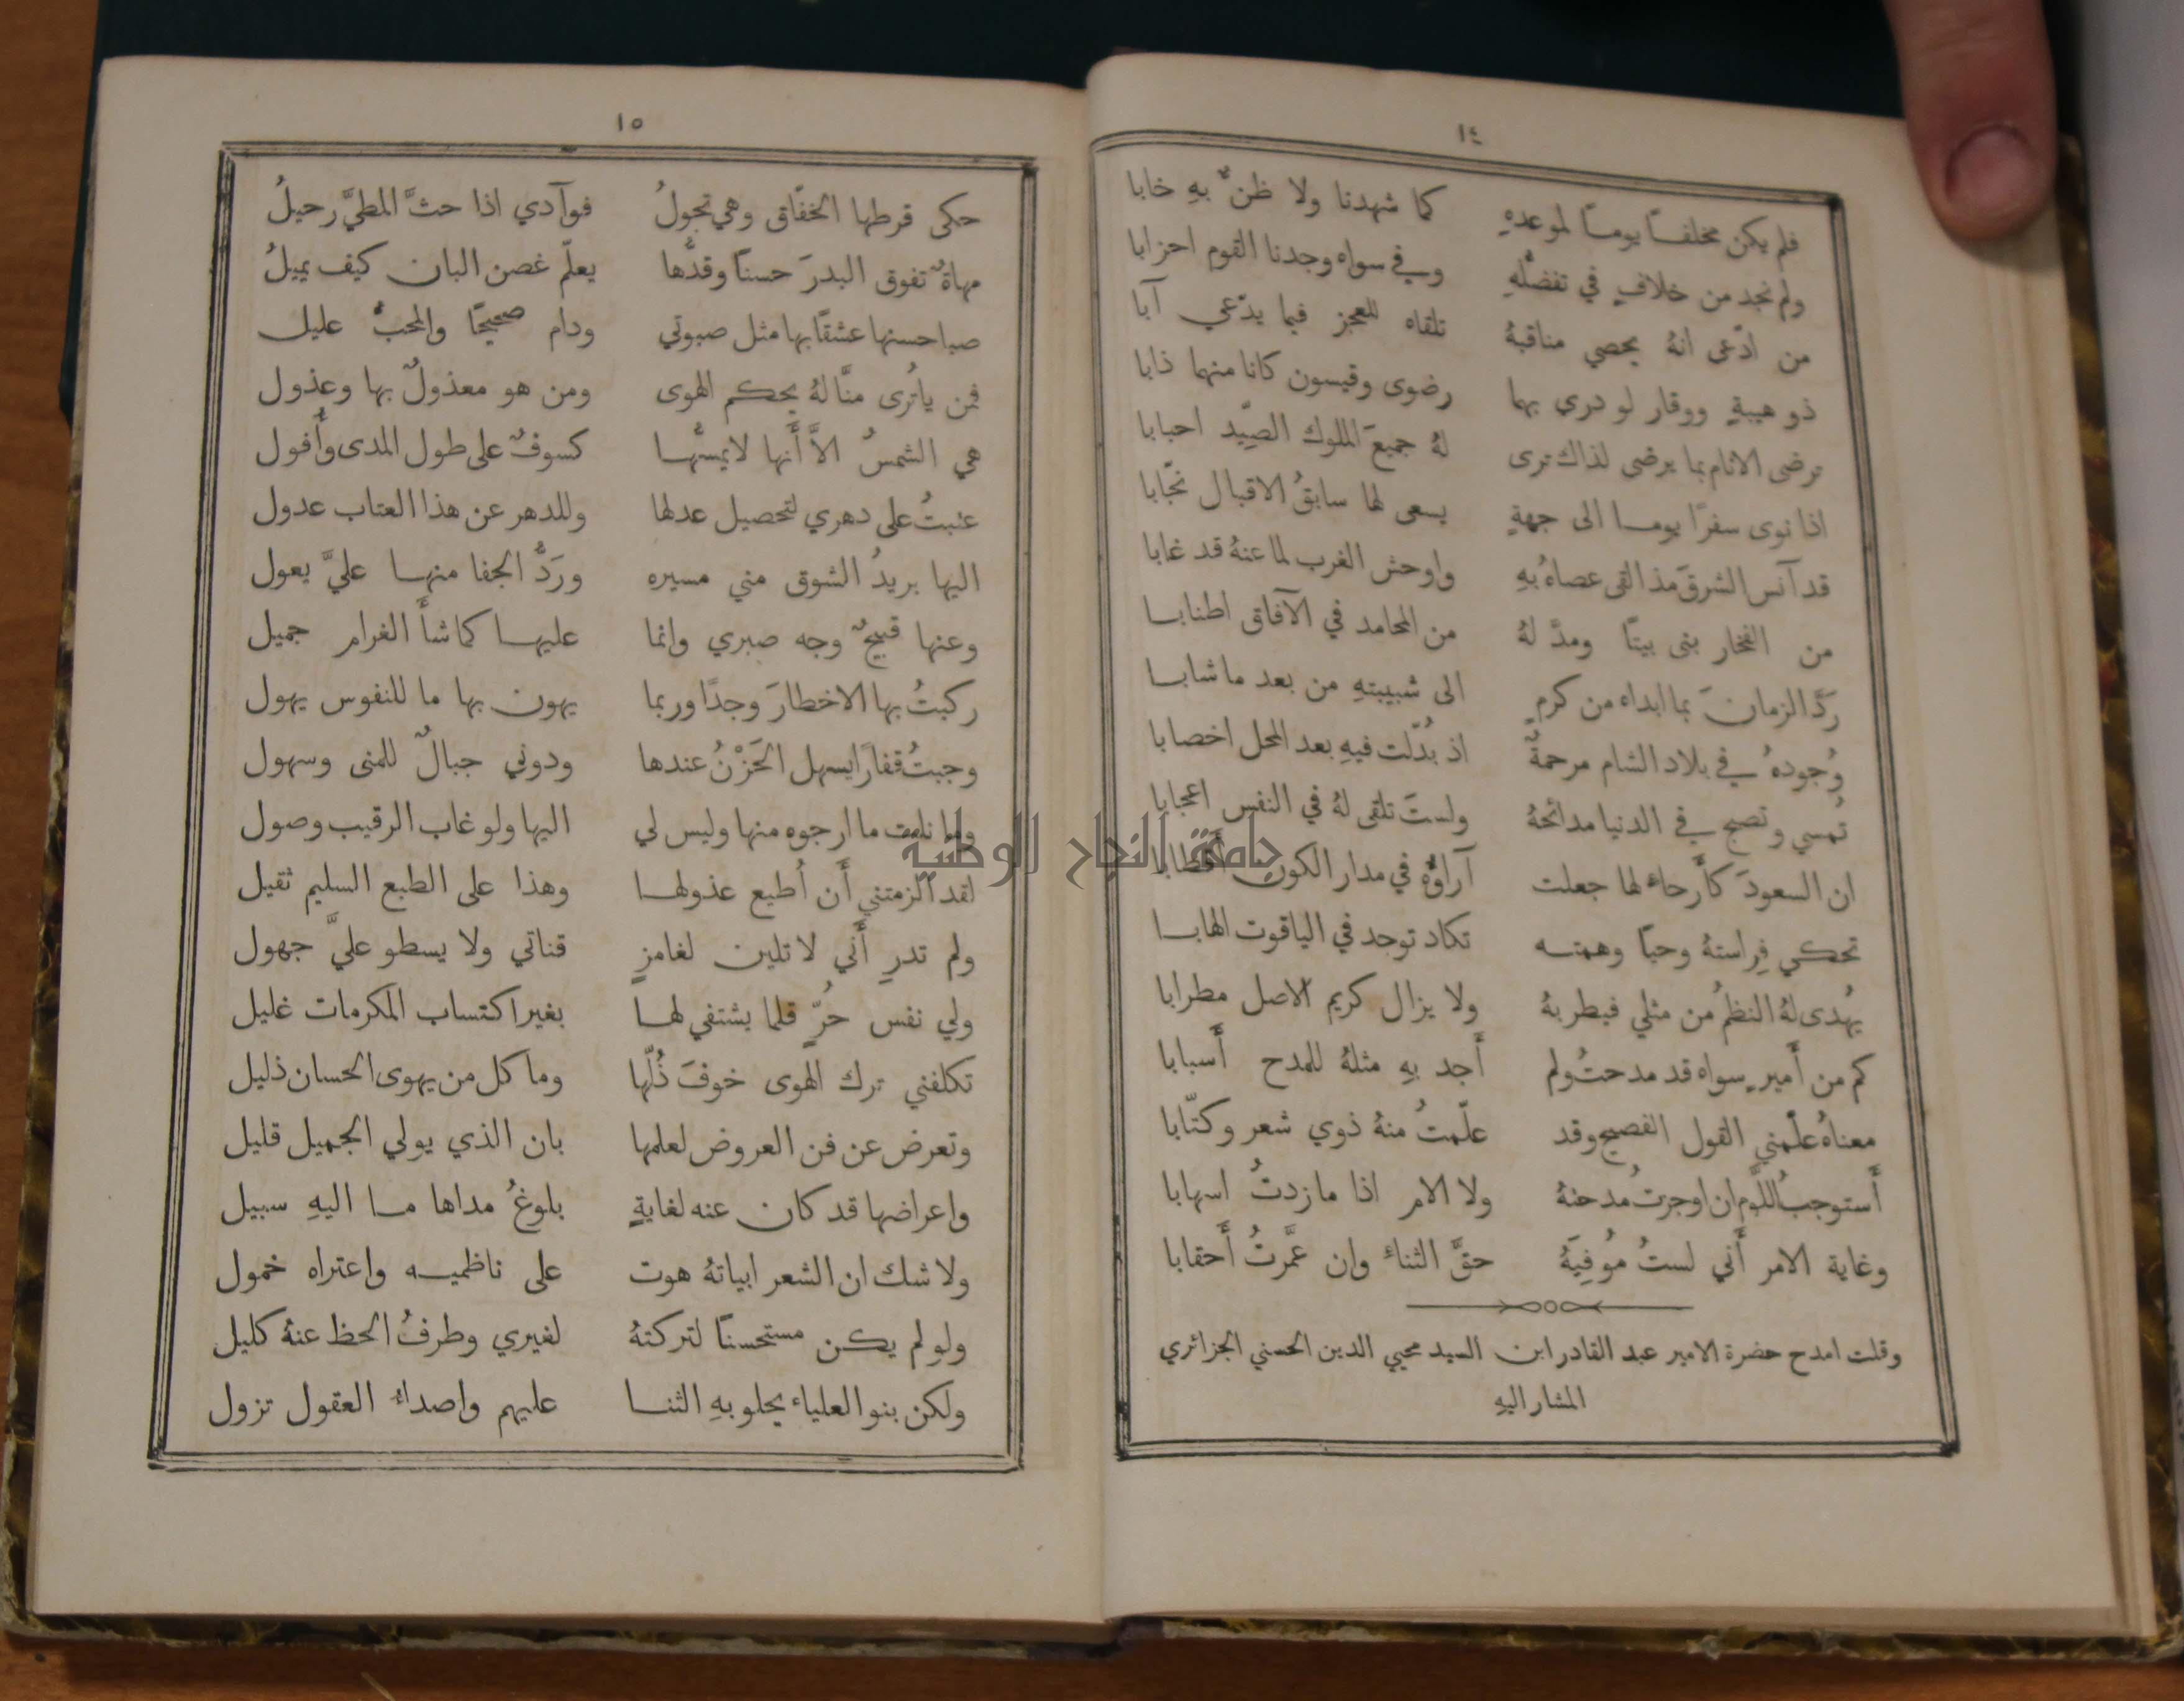 ١٤
فلم يكن مخلفًا يومًا لموعدهِ كما شهدنا ولا ظنٌّ بهِ خابا
ولم نجد من خلافٍ في تفضلّهِ وفي سواه وجدنا القوم احزابا
من ادّعى انهُ يحصي مناقبهُ تلقاه للعجز فيما يدّعي آبا
ذو هيبةٍ ووقار لو درى بهما رضوى وقيسون كانا منهما ذابا
ترضى الانام بما يرضى لذاك ترى لهُ جميعَ الملوك الصِّيد احبابا
اذا نوى سفرًا يومًا الى جهةٍ يسعى لها سابقُ الاقبال نجّابا
قد آنس الشرقَ مذ القى عصاهُ بهِ واوحش الغرب لما عنهُ قد غابا
من الفخار بنى بيتًا ومدَّ لهُ من المحامد في الآفاق اطنابا
رَدَّ الزمانَ بما ابداه من كرمٍ الى شبيبتهِ من بعد ما شابا
وُجودهُ في بلاد الشام مرحمةٌ اذ بُدّلت فيهِ بعد المحل اخصابا
تُمسي وتصبح في الدنيا مدائحهُ ولستَ تلقى لهُ في النفس اعجابا
ان السعودَ كأَرحاء لها جعلت آراؤُهُ في مدار الكون أَقطابا
تحكي فِراستهُ وحبًا وهمته تكاد توجد في الياقوت الهابا
يُهدى لهُ النظمُ من مثلي فيطربهُ ولا يزال كريم الاصل مطرابا
كم من أَميرٍ سواه قد مدحتُ ولم أَجد بهِ مثلهُ للمدح أَسبابا
معناهُ علّمني القول الفصيح وقد علّمتُ منهُ ذوي شعر وكتّابا
أَستوجبُ اللَّوم ان اوجزتُ مدحتهُ ولا الامر اذا ما زدتُ اسهابا
وغاية الامر أَني لستُ مُوفِيَهُ حقَّ الثناءِ وان عمَّرتُ أَحقابا
وقلت امدح حضرة الامير عبد القادر ابن السيد محيي الدين الحسني الجزائري
المشار اليهِ
١٥
حكى قرطها الخفّاق وهي تجولُ فوآدي اذا حثَّ المطيَّ رحيلُ
مهاةٌ تفوق البدرَ حسنًا وقدُّها يعلّم غصن البان كيف يميلُ
صبا حسنها عشقًا بها مثل صبوتي ودام صحيحًا والمحبُّ عليل
فمن يا تُرى منَّا لهُ يحكم الهوى ومن هو معذولٌ بها وعذول
هي الشمسُ الاَّ أَنها لا يمسُّها كسوفٌ على طول المدى وأُفول
عتبتُ على دهري لتحصيل عدلها وللدهر عن هذا العتاب عدول
اليها بريدُ الشوق مني مسيره ورَدُّ الجفا منها عليَّ يعول
وعنها قبيحٌ وجه صبري وانما عليها كما شأَ الغرام جميل
ركبتُ بها الاخطارَ وجدًا وربما يهون بها ما للنفوس يهول
وجبتُ قفارًا يسهل الحَزْنُ عندها ودوني جبالٌ للمنى وسهول
وما نلت ما ارجوه منها وليس لي اليها ولو غاب الرقيب وصول
لقد أَلزمتني أَن أُطيع عذولها وهذا على الطبع السليم ثقيل
ولم تدرِ أَني لا تلين لغامزٍ قناتي ولا يسطو عليَّ جهول
ولي نفس حُرٍّ قلما يشتفي لها بغير اكتساب المكرمات غليل
تكلفني ترك الهوى خوفَ ذُلّها وما كل من يهوى الحسان ذليل
وتعرض عن فن العروض لعلمها بان الذي يولي الجميل قليل
واعراضها قد كان عنه لغايةٍ بلوغُ مداها ما اليهِ سبيل
ولا شك ان الشعر ابياتهُ هوت على ناظميه واعتراه خمول
ولو لم يكن مستحسنًا لتركتهُ لغيري وطرفُ الحظ عنهُ كليل
ولكن بنو العلياء يجلو بهِ الثنا عليهم واصداءُ العقول تزول
جامعة النجاح الوطنية